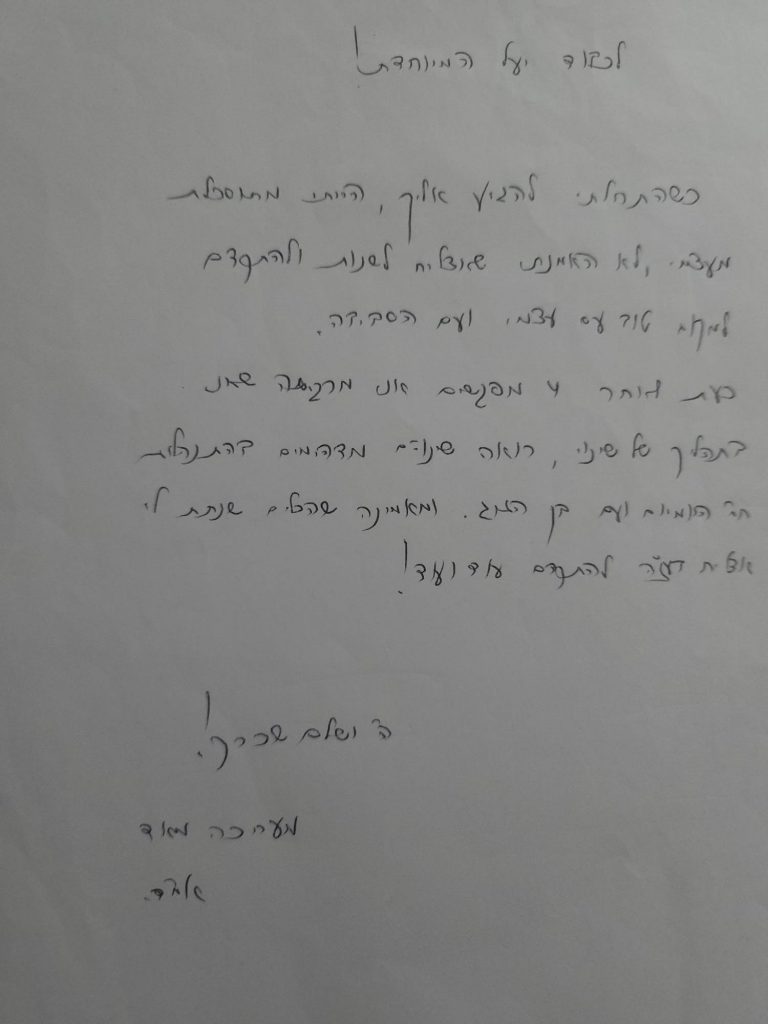 לכבוד יעל המיוחדת!
כשהתחלתי להגיע אליך, הייתי מתוסכלת
מעצמי, לא האמנתי שאצליח לשנות ולהתקדם
למקום טוב עם עצמי ועם הסביבה.
כעת לאחר 4 מפגשים אני מרגישה שאני
בתהליך של שינוי, רואה שינויים מדהימים בהתנהלות
עם בן הזוג. ומאמינה שהכלים שנתת לי
אצליח בעז"ה להתקדם עוד ועוד!
ה' ישלם שכרך!
מעריכה מאוד